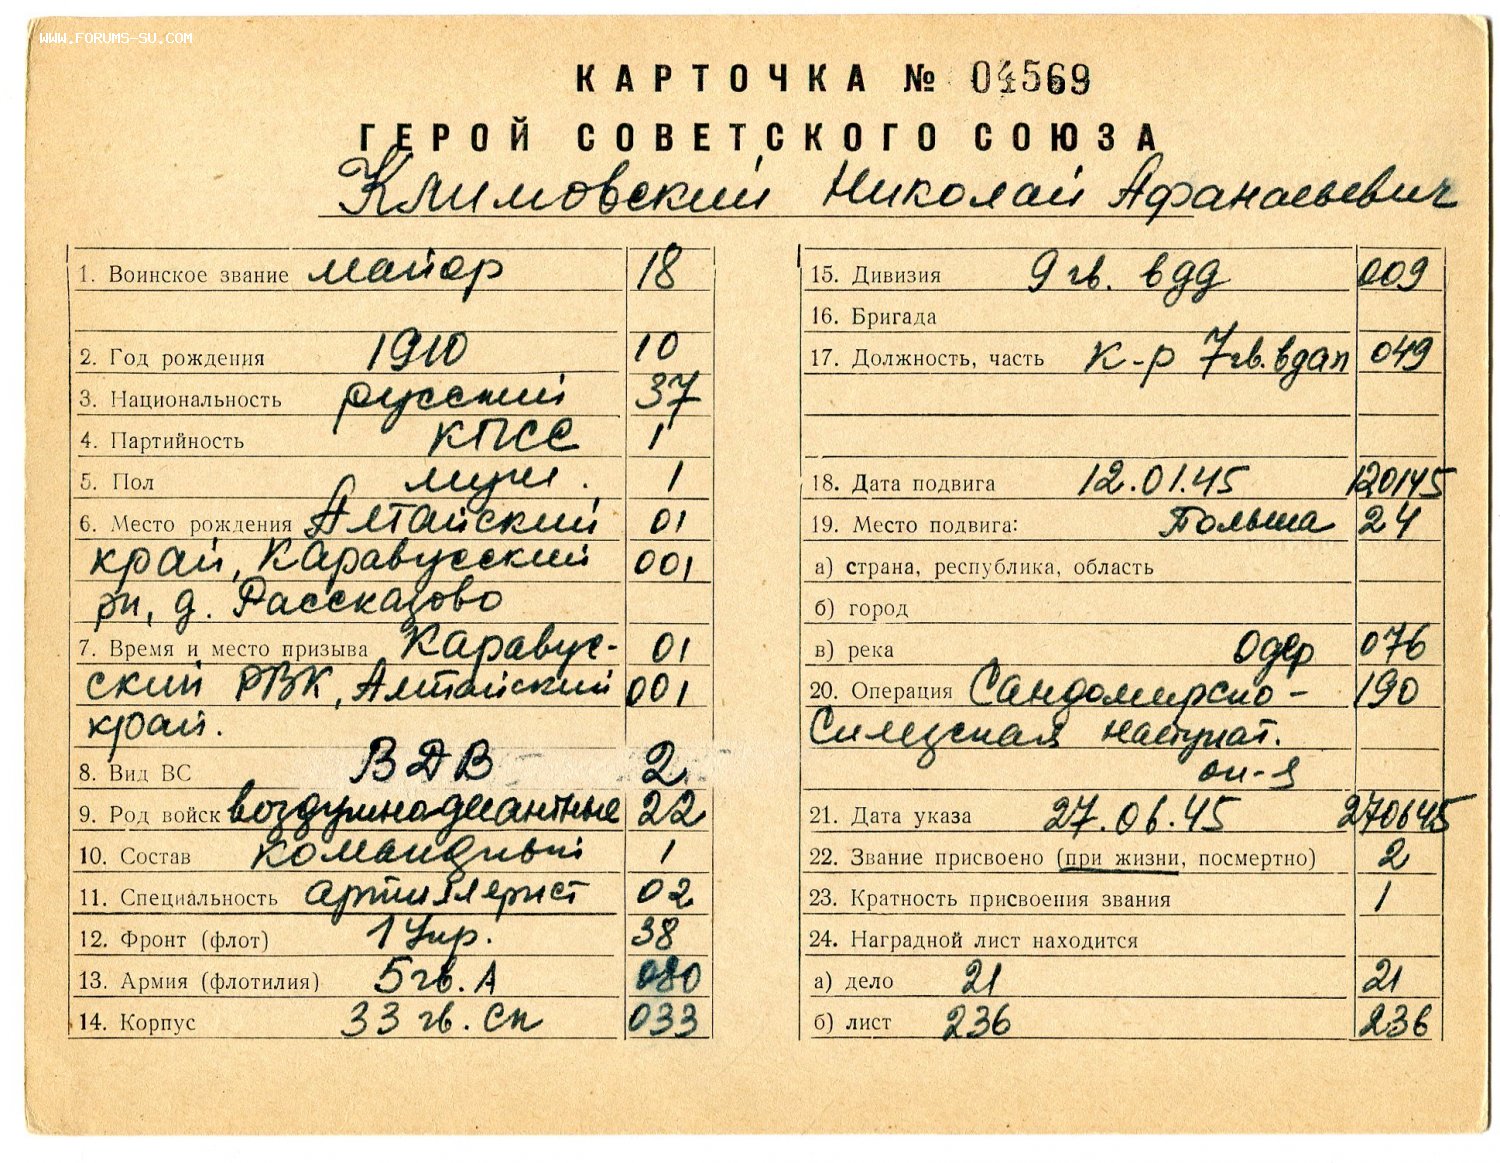 WWW.FORUMS-SU.COM
КАРТОЧКА № 04569
ГЕРОЙ СОВЕТСКОГО СОЮЗА
Климовский Николай Афанасьевич
1. Воинское звание майор 18
2. Год рождения 1910 10
3. Национальность русский 37
4. Партийность КПСС 1
5. Пол муж. 1
6. Место рождения Алтайский 01
край, Каравусский 001
рн, д. Рассказово
7. Время и место призыва Каравус- 01
ский РВК, Алтайский 001
край.
8. Вид ВС ВДВ 2
9. Род войск воздушнодесантные 22
10. Состав командный 1
11. Специальность артиллерист 02
12. Фронт (флот) 1 Укр. 38
13. Армия (флотилия) 5 гв. А 080
14. Корпус 33 гв. ск 033
15. Дивизия 9 гв. вдд 009
16. Бригада
17. Должность, часть к-р 7 гв. вдап 049
18. Дата подвига 12.01.45 120145
19. Место подвига: Польша 24
а) страна, республика, область
б) город
в) река Одер 076
20. Операция Сандомирско- 190
Силезская наступат.
оп-я
21. Дата указа 27.06.45 270645
22. Звание присвоено (при жизни, посмертно) 2
23. Кратность присвоения звания 1
24. Наградной лист находится
а) дело 21 21
б) лист 236 236